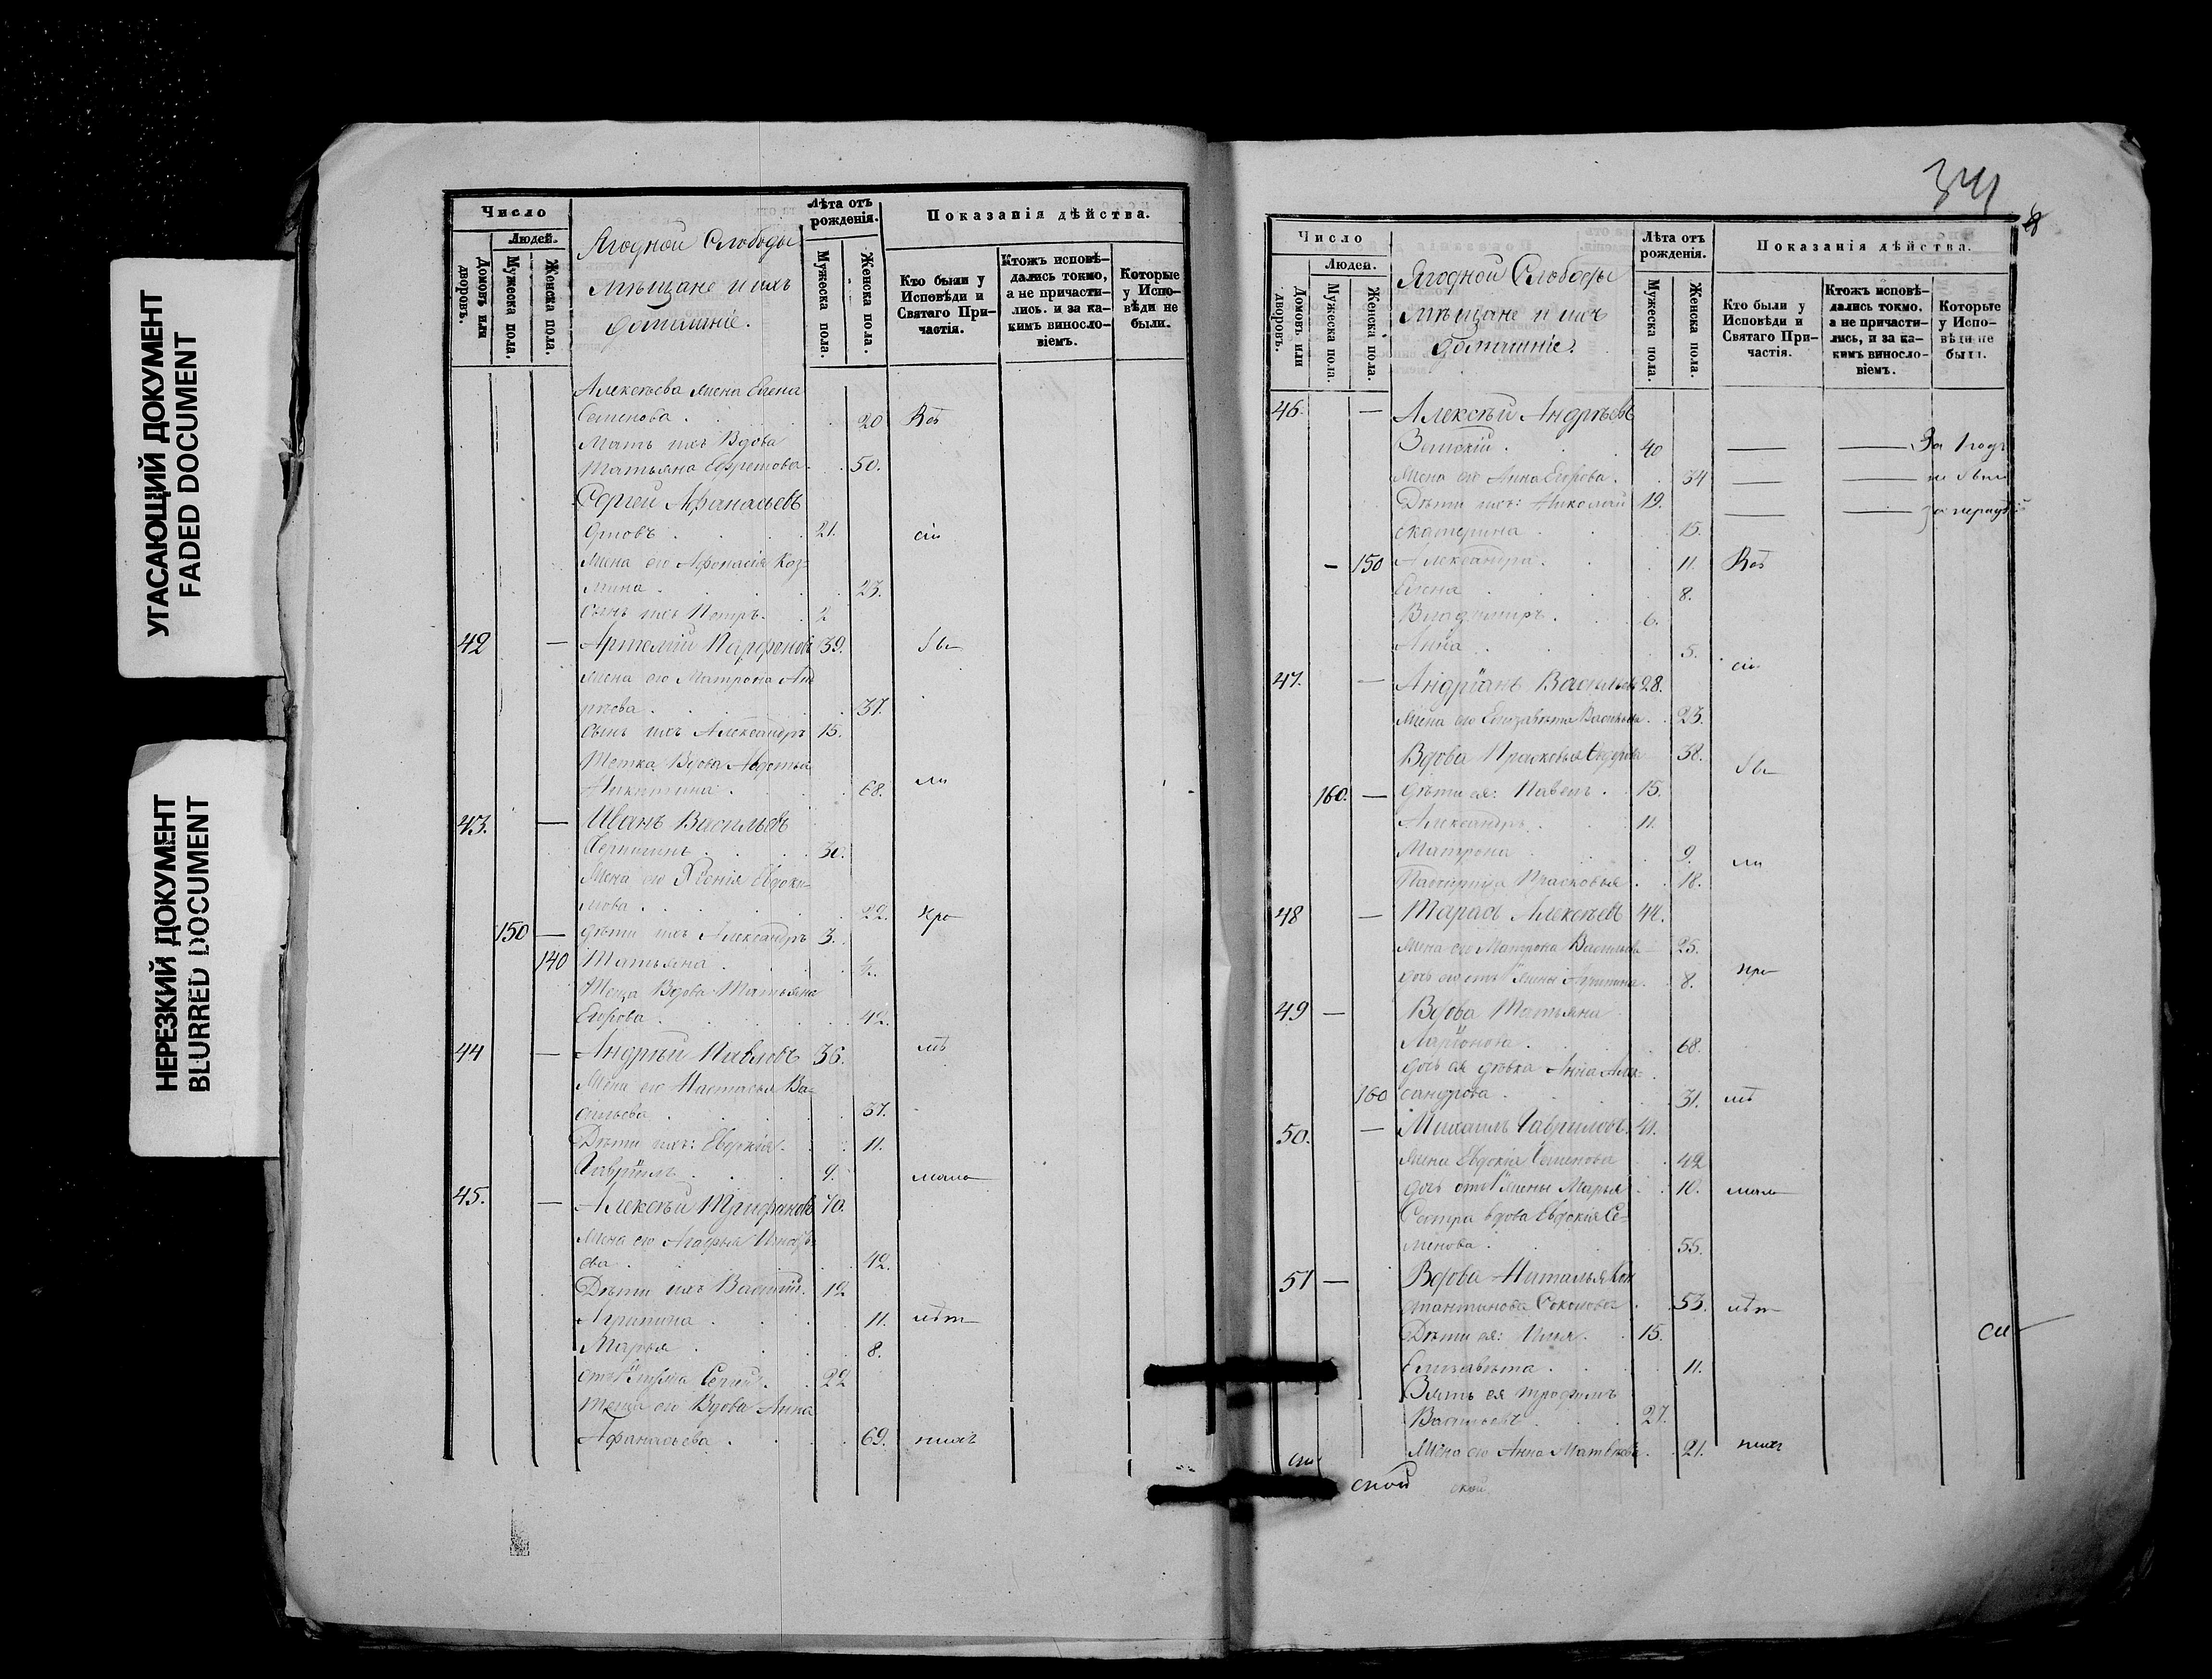 УГАСАЮЩИЙ ДОКУМЕНТ
FADED DOCUMENT
НЕРЕЗКИЙ ДОКУМЕНТ
BLURRED DOCUMENT
Число
Людей.
Домовъ или дворовъ.
Мужеска пола.
Женска пола.
Ягодной Слободы
мѣщане и ихъ
домашніе.
Лѣта отъ рожденія.
Мужеска пола.
Женска пола.
Показанія дѣйства.
Кто были у Исповѣди и Святаго Причастія.
Ктожъ исповѣдались токмо, а не причастились. и за какимъ винословіемъ.
Которые у Исповѣди не были.
Алексѣева жена Елена
Семенова . 20 Всѣ
Мать ихъ Вдова
Татьяна Ефремова . 50.
Сергей Афанасьевъ
21. сіи
Жена его Афонасія Коз-
мина . 23.
Сынъ ихъ Петръ . 2
42 — Артемій Парфеновъ 39. бы
Жена его Матрона Ан
37.
Сынъ ихъ Александръ 15.
Тетка Вдова Авдотья
Никитина . 68. ли
43. — Иванъ Васильевъ
30.
Жена его Ксенія Евдоки-
мова . 22. при
150 — дѣти ихъ Александръ 3.
140 Татьяна .
Теща Вдова Татьяна
Егорова . 42.
44 — Андрей Павловъ 36.
Жена его Настасья Ва-
сильева . 37.
Дѣти ихъ: Евдокія . 11.
Гавріилъ . 9.
45. — Алексѣй Трифановъ 40.
Жена его Агафья
ева . 42.
Дѣти ихъ Василій . 12
Агрипина . 11.
Марья . 8.
Сергей . 22
теща его Вдова Анна
Афанасьева . 69.
341
Число
Людей.
Домовъ или дворовъ.
Мужеска пола.
Женска пола.
Ягодной Слободы
мѣщане и ихъ
домашніе.
Лѣта отъ рожденія.
Мужеска пола.
Женска пола.
Показанія дѣйства.
Кто были у Исповѣди и Святаго Причастія.
Ктожъ исповѣдались токмо, а не причастились, и за какимъ винословіемъ.
Которые у Исповѣди не были.
46. — Алексѣй Андрѣевъ
40 — — За 1 годъ
Жена его Анна Егорова . 34 — — не были
Дѣти ихъ: Николай 19. — —
Екатерина . 15.
— 150 Александра . 11. Всѣ
Елена . 8.
Владимиръ . 6.
Анна . 5. сіи
47. — Андріанъ Васильевъ 28.
Жена его Елизавѣта Васильева . 23.
Вдова Прасковья 38. бы
160. — дѣти ея: Павелъ . 15.
Александръ . 11.
Матрона . 9. ли
Падчирица Прасковья . 18.
48 — Тарасъ Алексѣевъ 44.
Жена его Матрона Васильева 25.
дочь его отъ 1й жены Агрипина . 8. при
49 — Вдова Татьяна
Ларіонова . 68.
дочь ея дѣвка Анна Алек-
160 сандрова . 31.
50. — Михаилъ Гавриловъ . 41.
Жена Евдокія Семенова 42
дочь отъ 1й жены Марья . 10.
Сестра вдова Евдокія Се-
менова . 55.
51 — Вдова Наталья Кон
стантинова Соколова . 53.
Дѣти ея: Илья . 15.
Елизавѣта . 11.
Зять ея Трофимъ
Васильевъ . 27.
Жена его Анна Матвѣева . 21.
ской